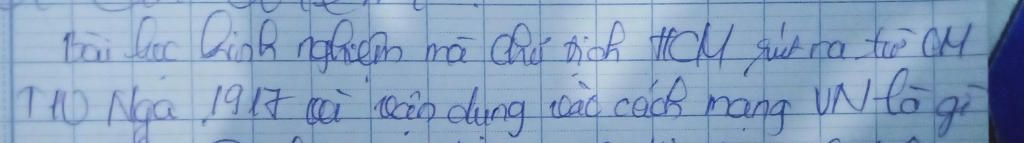 Bài học kinh nghiệm mà chủ tịch HCM rút ra từ CM
T10 Nga 1917 và vận dụng vào cách mạng VN là gì